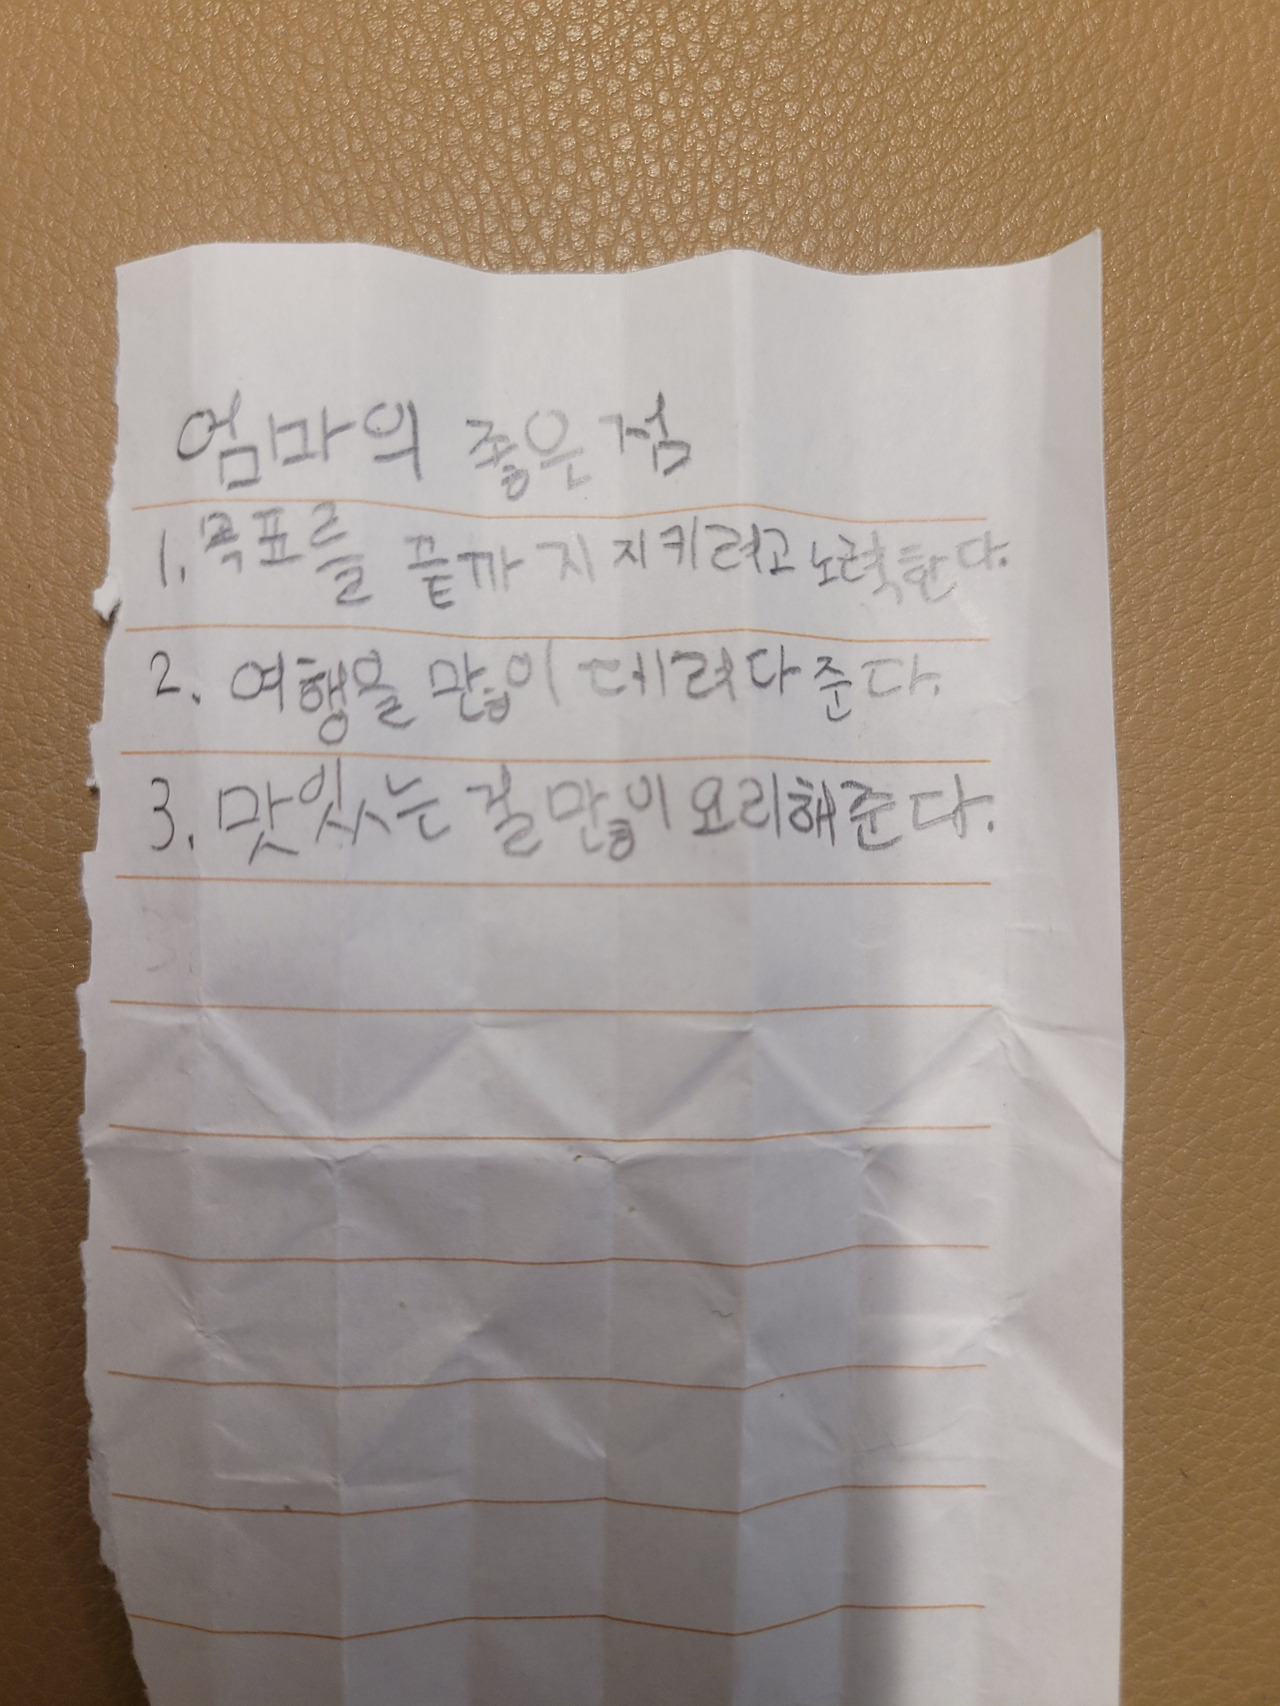 엄마의 좋은 점
1. 목표를 끝까지 지키려고 노력한다.
2. 여행을 많이 데려다 준다.
3. 맛있는 걸 많이 요리해준다.